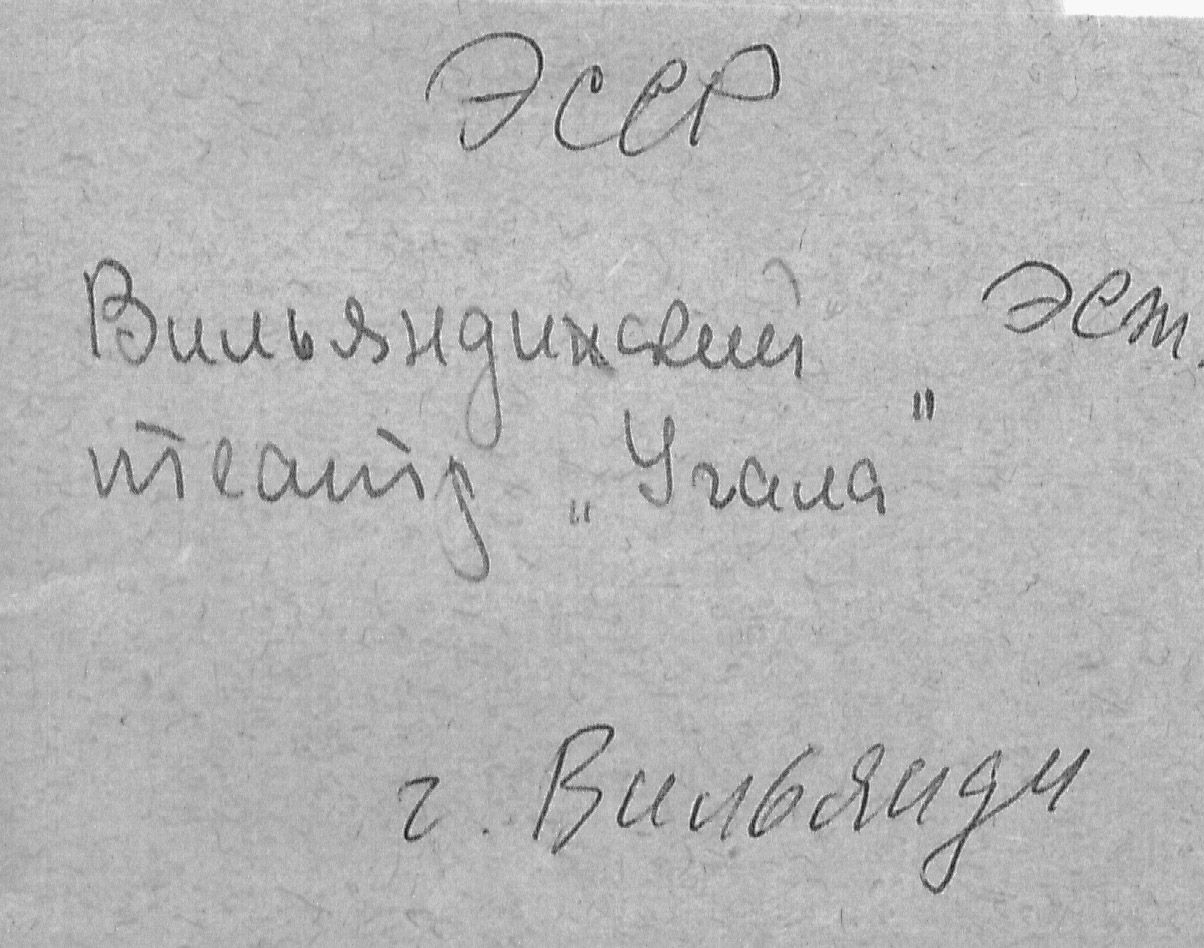 ЭССР
Вильяндинский эст.
театр „Угала"
г. Вильянди